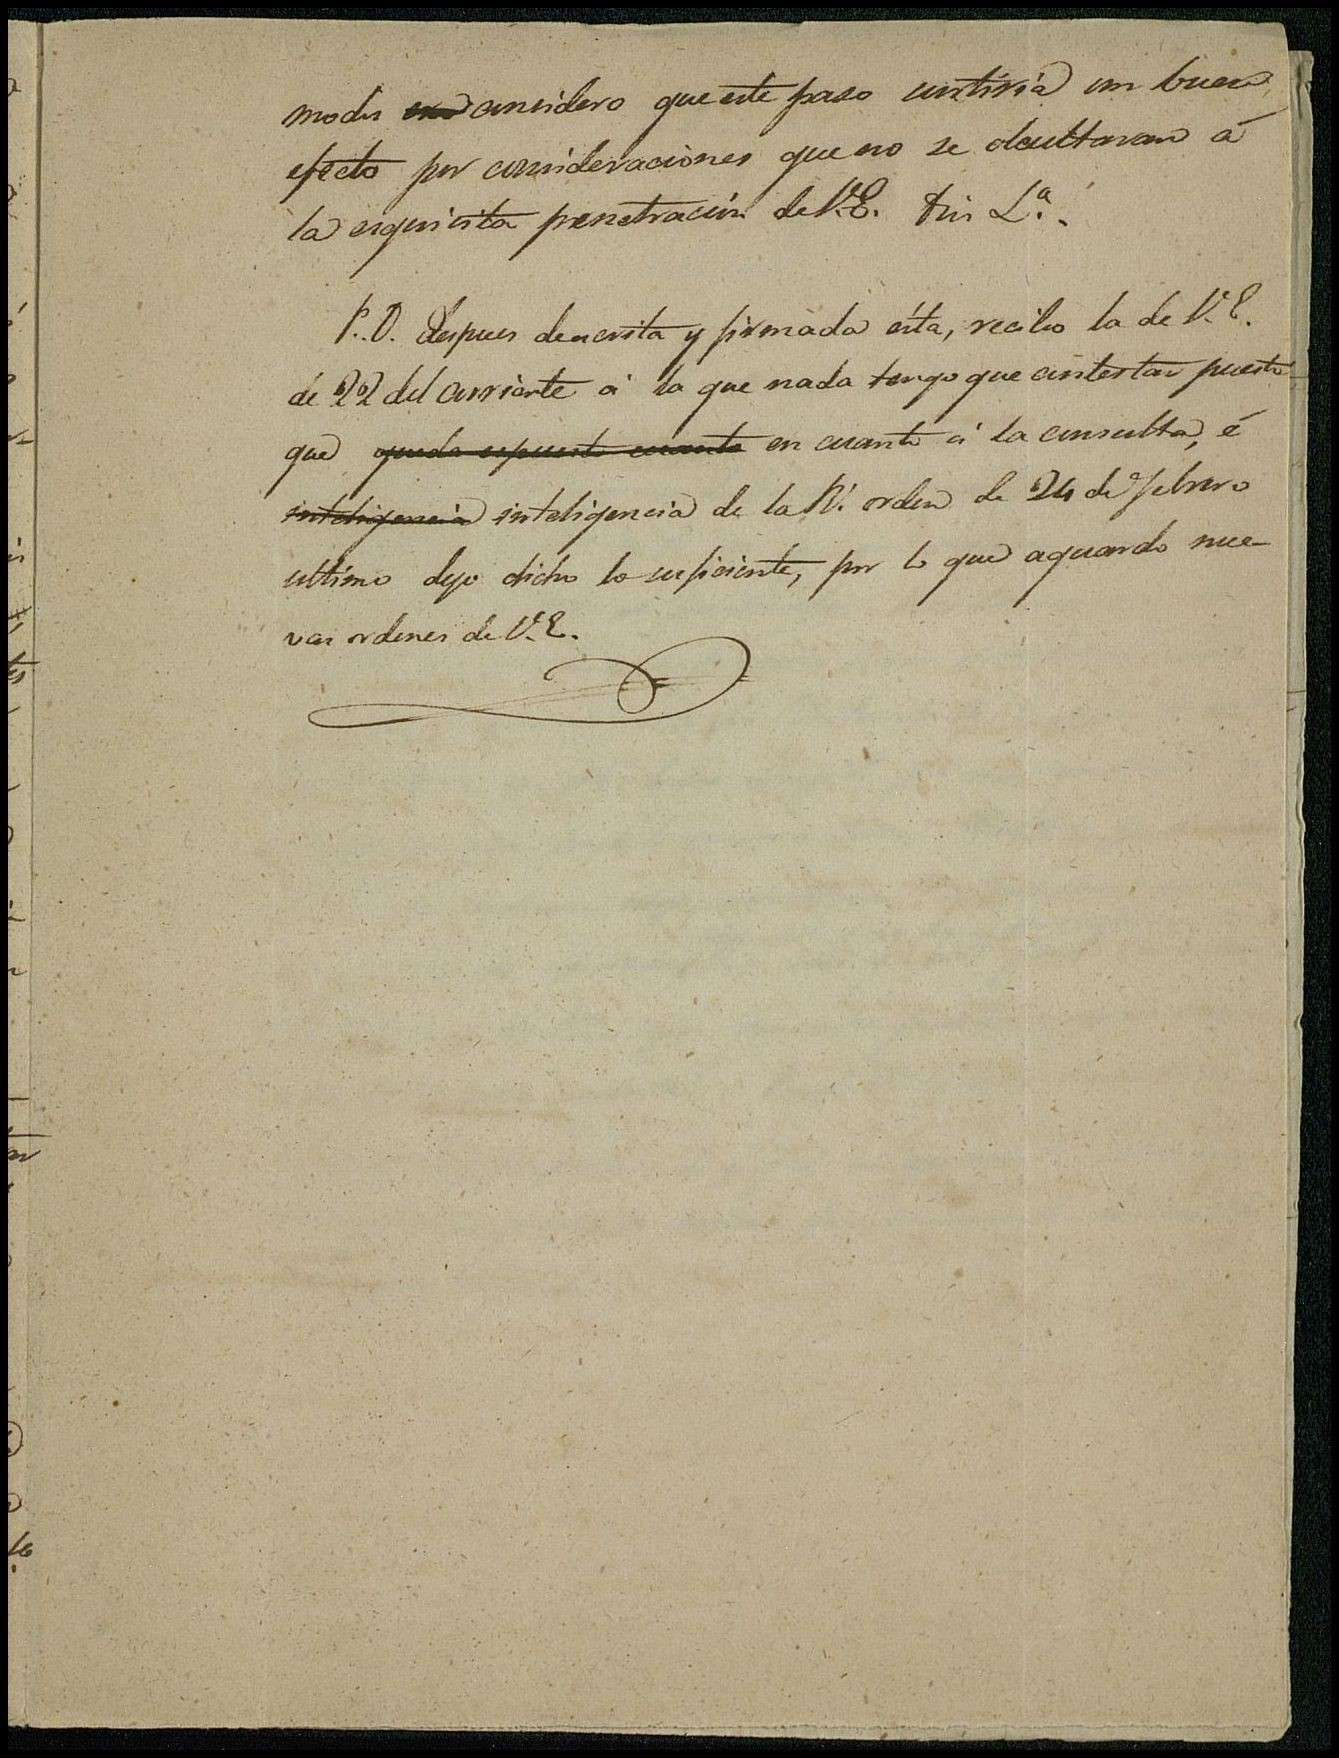 modos considero que este paso surtiria un buen
efecto por consideraciones que no se ocultaran á
la esquisita penetracion de V.E. L.ª
P.D. despues de escrita y firmada esta, recibo la de V.E.
de 22 del corriente á la que nada tengo que contestar puesto
que queda espuesto cuanto en cuanto á la consulta, é
inteligencia inteligencia de la Rl. orden de 24 de Febrero
ultimo dejo dicho lo suficiente, por lo que aguardo nue-
vas ordenes de V.E.